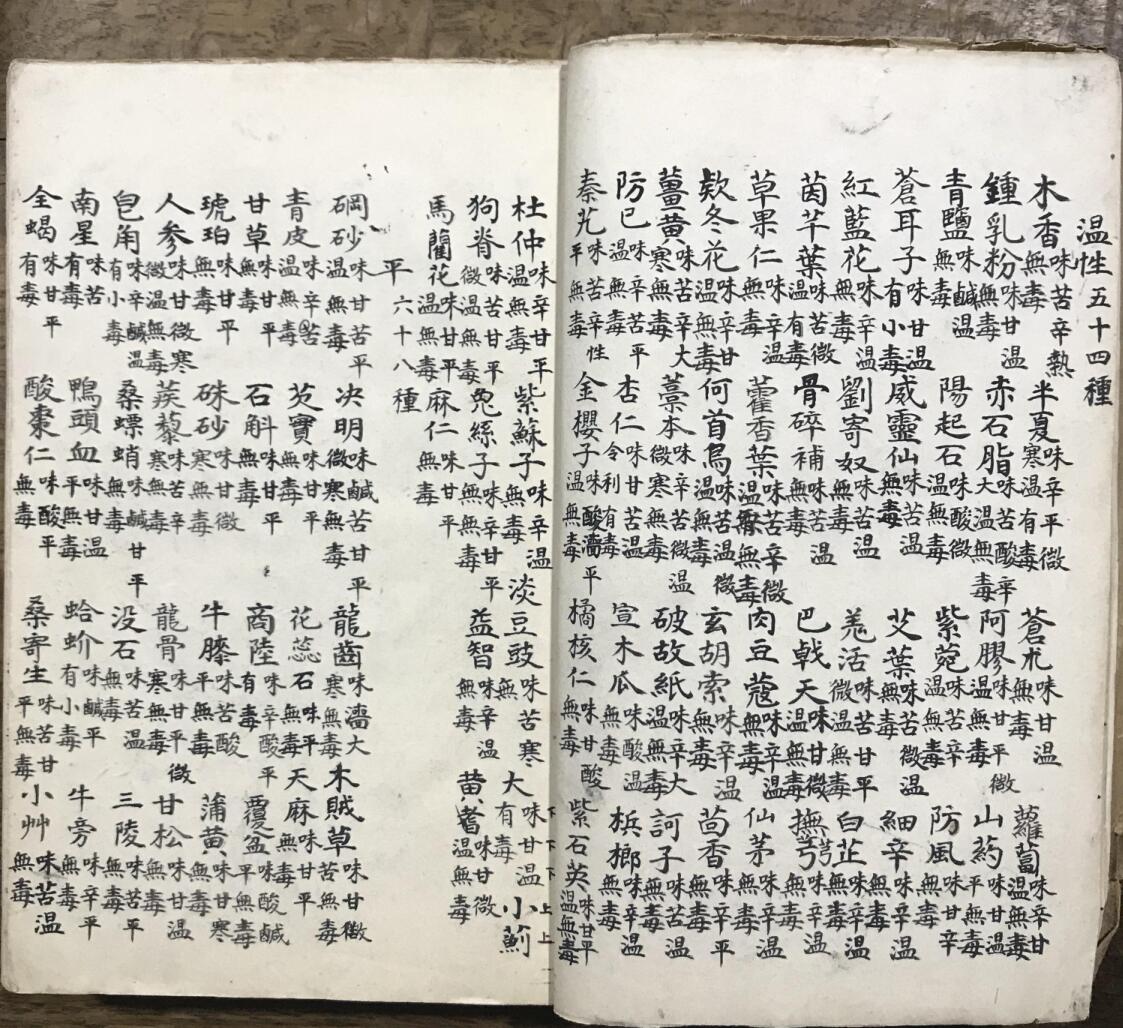 温性五十四種
木香味苦辛熱無毒半夏味辛平微寒温有毒蒼朮味甘温無毒蘿蔔味辛甘温無毒
鍾乳粉味甘温無毒赤石脂味苦酸辛大温無毒阿膠味甘平微温無毒山药味甘温平無毒
青鹽味鹹温無毒陽起石味酸微温無毒紫菀味苦辛温無毒防風味甘辛無毒
蒼耳子味甘温有小毒威靈仙味苦温無毒艾葉味苦微温無毒細辛味辛温無毒
紅藍花味辛温無毒劉寄奴味苦温無毒羗活味苦甘平微温無毒白芷味辛温無毒
茵芋葉味苦微温有毒骨碎補味苦温無毒巴戟天味甘微温無毒撫芎味辛温無毒
草果仁味辛温無毒藿香葉味苦辛微温無毒肉豆蔻味辛温無毒仙茅味辛温無毒
欵冬花味辛甘温無毒何首烏味苦微温無毒玄胡索味辛温無毒茴香味辛平無毒
薑黄味苦辛大寒無毒藁本味辛苦微温微寒無毒破故紙味辛大温無毒訶子味苦温無毒
防已味辛苦平温無毒杏仁味甘苦温令利有毒宣木瓜味酸温無毒梹榔味辛温無毒
秦艽味苦辛性平無毒金櫻子味酸濇平温無毒橘核仁味甘酸無毒紫石英味甘平温無毒
杜仲味辛甘平温無毒紫蘇子味辛温無毒淡豆豉味苦寒無大味甘温有毒小薊
狗脊味苦甘平微温無毒兔絲子味辛甘平無毒益智味辛温無毒黄耆味甘微温無毒
馬藺花味甘平温無毒麻仁味甘平無毒
平六十八種
硇砂味甘苦平温無毒决明味鹹苦甘平微寒無毒龍齒味濇大寒無毒木賊草味甘微苦無毒
青皮味辛苦温無毒芡實味甘平無毒花蕊石味平無毒天麻味甘平無毒
甘草味甘平無毒石斛味甘平無毒商陸味辛酸平有毒覆盆味酸鹹平無毒
琥珀味甘平無毒硃砂味甘微寒無毒牛膝味苦酸平無毒蒲黄味甘寒無毒
人參味甘微寒微温無毒蒺藜味苦辛寒無毒龍骨味甘平微寒無毒甘松味甘温無毒
皂角味辛鹹温有小毒桑螵蛸味鹹甘平無毒没石味苦温無毒三陵味苦平無毒
南星味苦有毒鴨頭血味甘温平無毒蛤蚧味鹹平有小毒牛旁味辛平無毒
全蝎味甘平有毒酸棗仁味酸平無毒桑寄生味苦甘平無毒小艸味苦温無毒